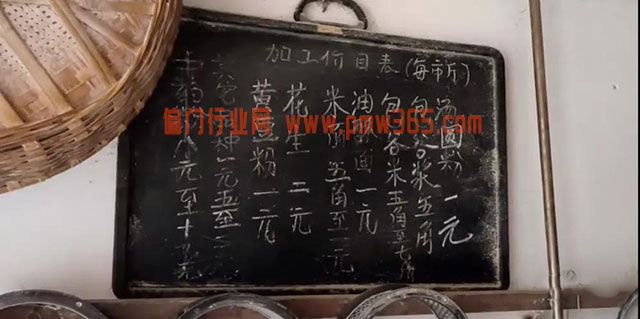 加工价目表(每市斤)
汤圆粉 一元
包谷浆 五角
包谷米五角至七角
油 面一元
米 五角至 元
花生 二元
黄豆粉 元
种一元五至
中药 元至十 元
偏门行业网 www.pmw365.com